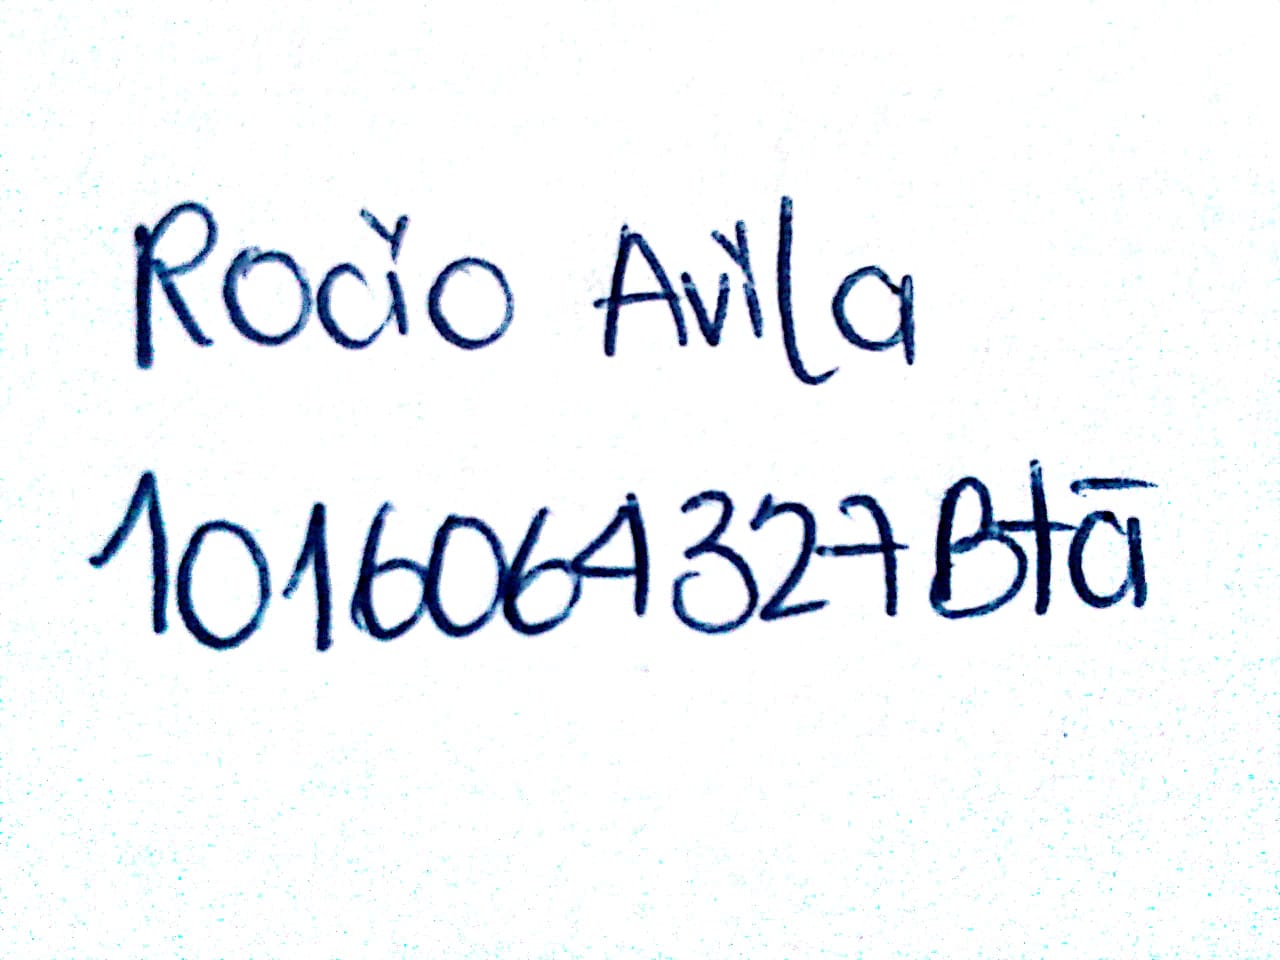 Rocio Avila
1016064327 Btā